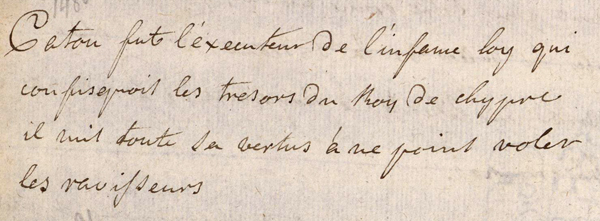 Caton fut l'éxecuteur de l'infame loy qui
confisquoit les tresors du Roy de chypre
il mit toute sa vertus à ne point voler
les ravisseurs